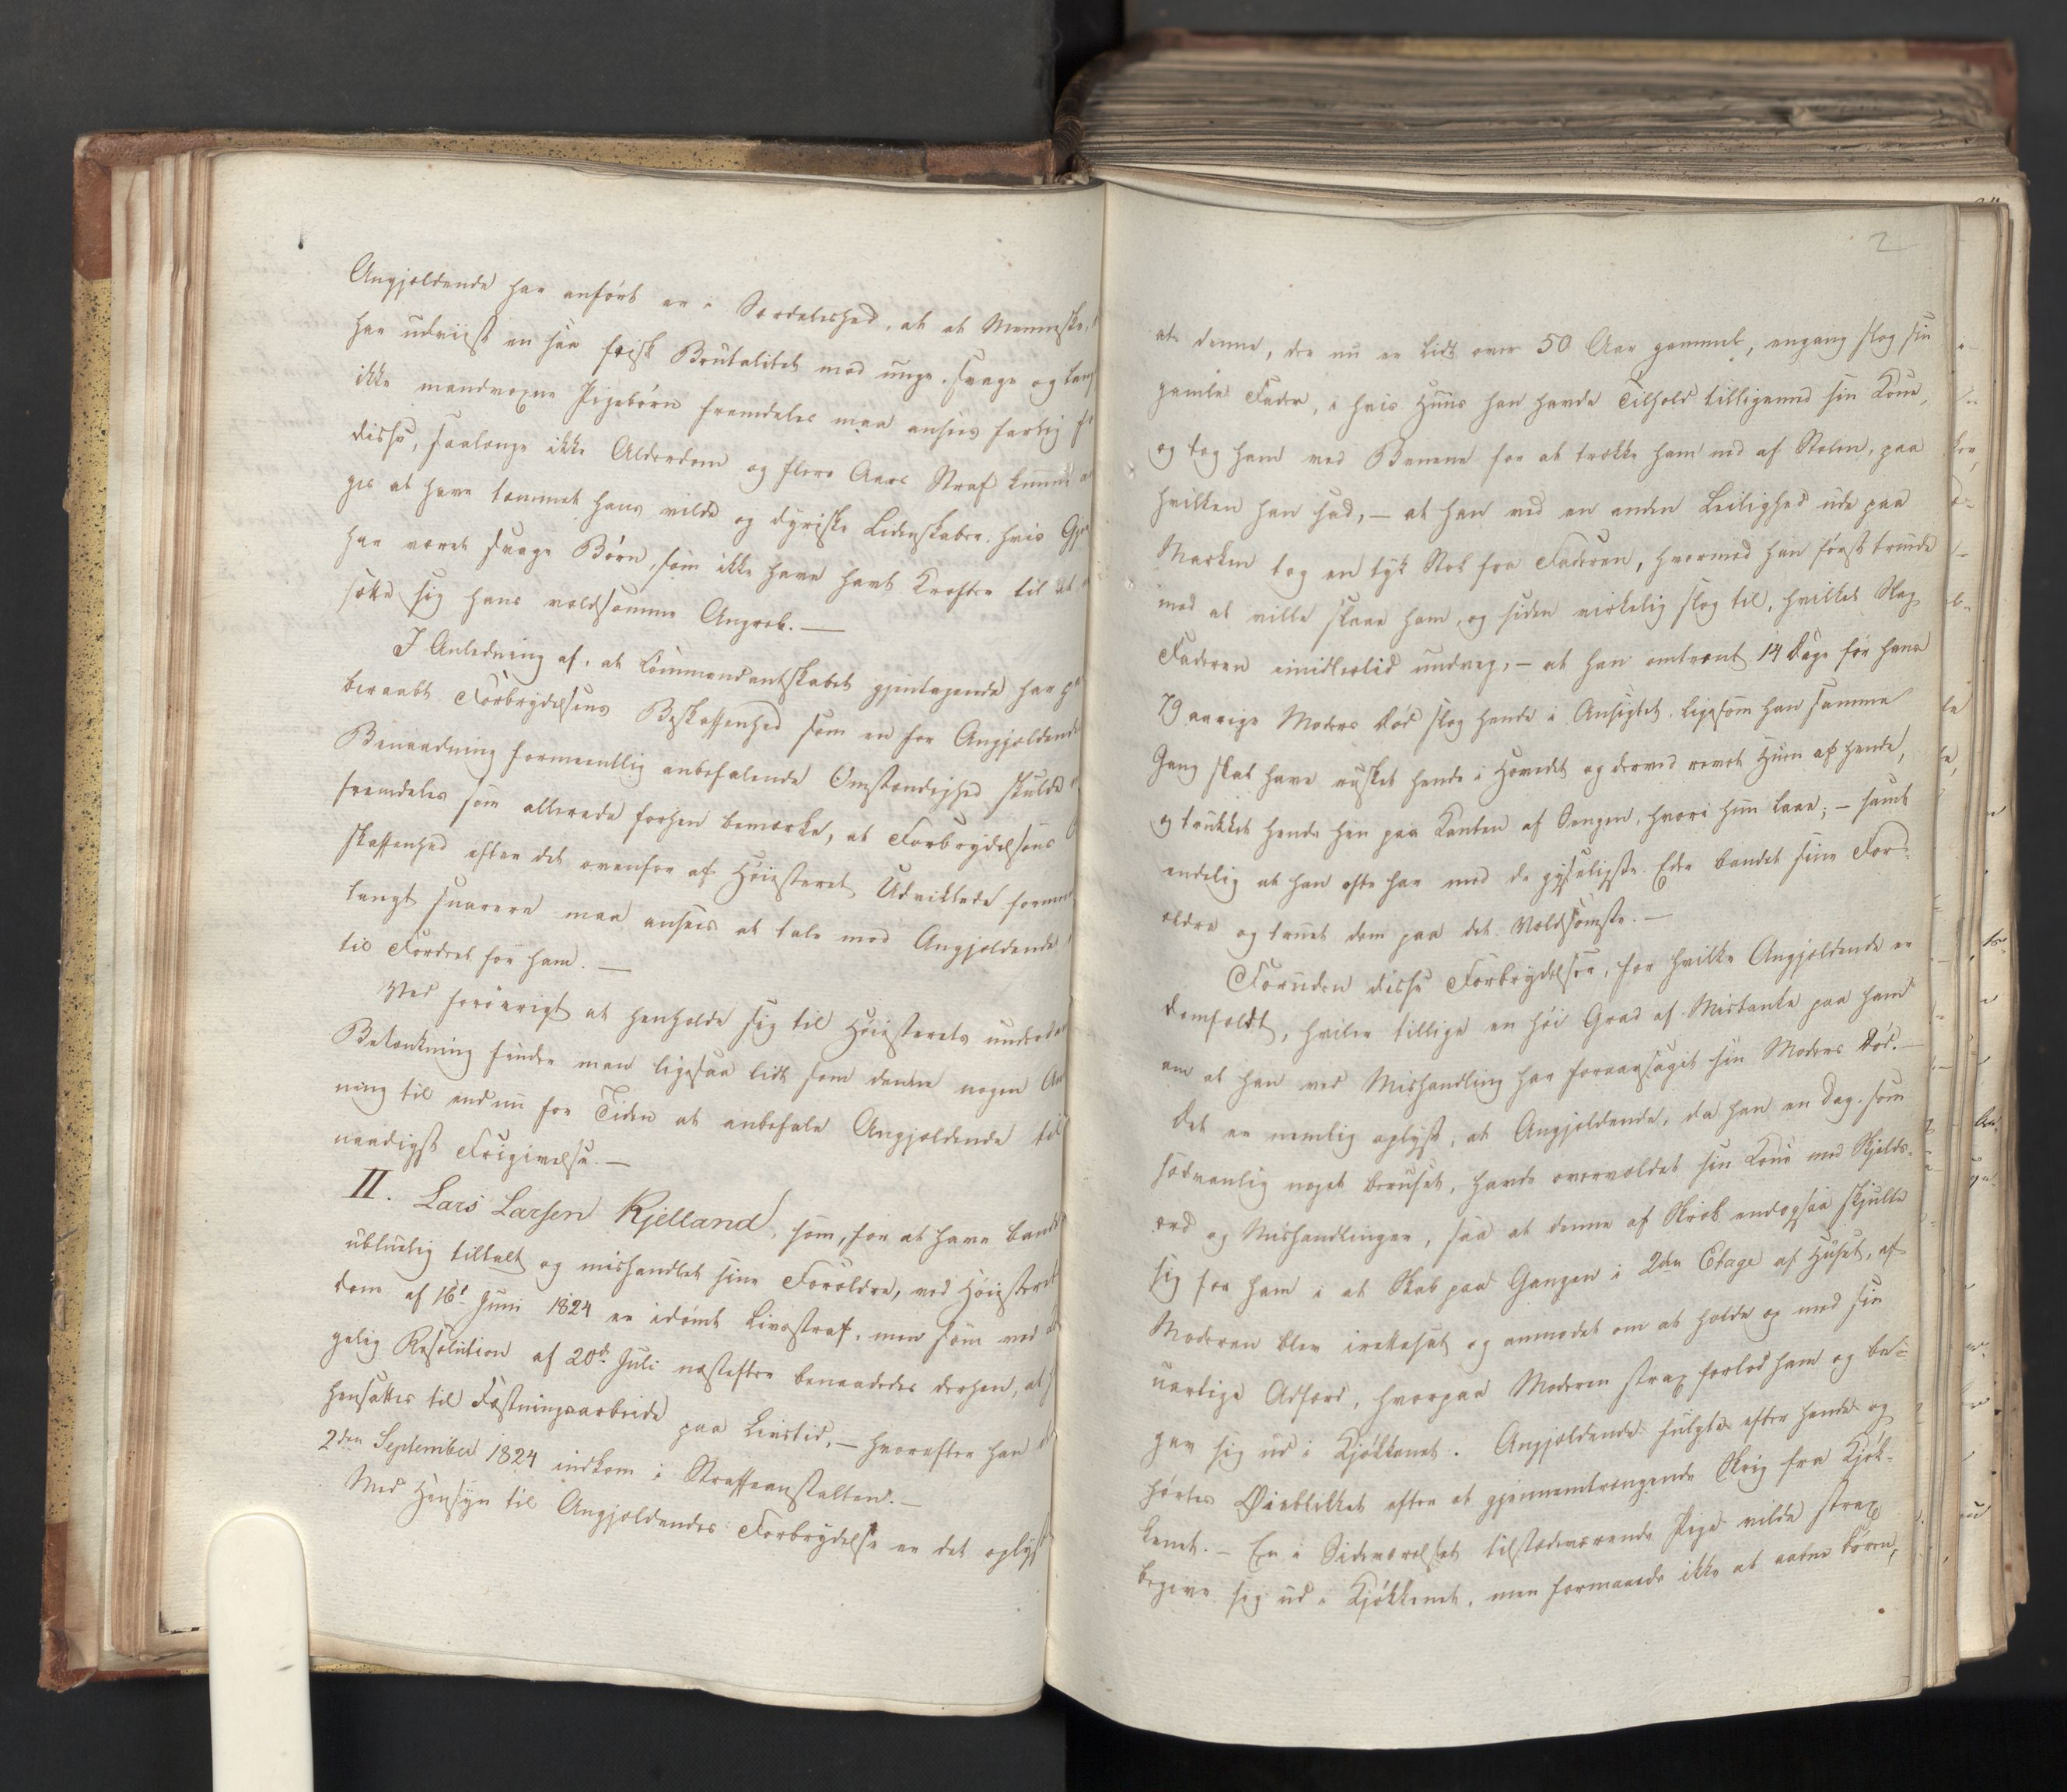 Angjældende har anført er i Særdeleshed, at et Menneske,
har udviist en saa fræk Brutalitet mod unge, svage og lang
ikke mandvoxne Pigebørn fremdeles maa ansees farlig f
disse, saalænge ikke Alderdom og flere Aars Straf kunne a
ges at have tæmmet hans vilde og dyriske Lidenskaber, hvis Gje
har været svage Børn, som ikke have havt Kræfter til at
sætte sig hans voldsomme Angreb. —
I Anledning af, at Commandantskabet gjentagende har p
beraabt Forbrydelsens Beskaffenhed som en for Angjældendes
Benaadning formeentlig anbefalende Omstændighed skulde
fremdeles som allerede forhen bemærke, at Forbrydelsens
skaffenhed efter det ovenfor af Høiesteret Udviklede forme
langt snarere maa ansees at tale mod Angjældende
til Fordeel for ham. —
Ved forøvrigt at henholde sig til Høiesterets underd
Betænkning finder man ligesaa lidt som denne nogen An
ning til endnu for Tiden at anbefale Angjældende til
naadigst Frigivelse. —
II. Lars Larsen Kjelland, som, for at have band
ublueligen tiltalt og mishandlet sine Forældre, ved Høiesteret
dom af 16de Juni 1824 er idømt Livsstraf, men som ved
gelig Resolution af 20de Juli næstefter benaadedes derhen, at h
hensattes til Fæstningsarbeide paa Livstid, — hvorefter han
2den September 1824 indkom i Straffeanstalten. —
Med Hensyn til Angjældendes Forbrydelse er det oplyst
2
at denne, der nu er lidt over 50 Aar gammel, engang slog sin
gamle Fader, i hvis Huus han havde Tilhold tilligemed sin Kone,
og tog ham ved Benene for at trække ham ned af Stolen, paa
hvilken han sad, — at han ved en anden Leilighed ude paa
Marken tog en tyk Stok fra Faderen, hvormed han først truede
med at ville slaae ham, og siden virkelig slog til, hvilket Slag
Faderen imidlertid undveg, — at han omtrent 14 Dage før hans
79 aarige Moders Død slog hende i Ansigtet, ligesom han samme
Gang skal have rusket hende i Hovedet og derved revet Huen af hende,
og trukket hende hen paa Kanten af Sengen, hvori hun laae; — samt
endelig at han ofte har med de gyseligste Eder bandet sine For-
ældre og truet dem paa det Voldsomste. —
Foruden disse Forbrydelser, for hvilke Angjældende er
domfældt, hviler tillige en høi Grad af Mistanke paa ham
om at han ved Mishandling har foraarsaget sin Moders Død. —
Det er nemlig oplyst, at Angjældende, da han en Dag, som
sædvanlig noget beruset, havde overvældet sin Kone med Skjelds-
ord og Mishandlinger, saa at denne af Skræk endogsaa skjulte
sig for ham i et Skab paa Gangen i 2den Etage af Huset, af
Moderen blev irettesat og anmodet om at holde op med sin
uartige Adfærd, hvorpaa Moderen strax forlod ham og be-
gav sig ud i Kjøkkenet. Angjældende fulgte efter hende og
hørtes Øieblikket efter et gjennemtrængende Skrig fra Kjøk-
kenet. — En i Sideværelset tilstedeværende Pige vilde strax
begive sig ud i Kjøkkenet, men formaaede ikke at aabne Døren,